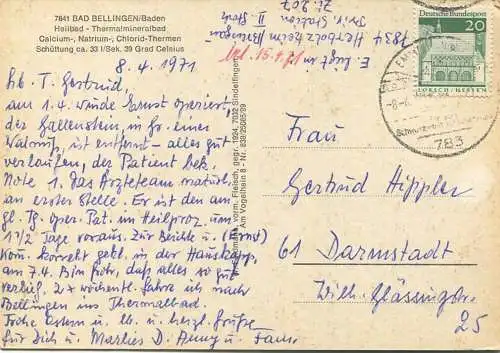 7841 BAD BELLINGEN/Baden
Heilbad - Thermalmineralbad
Calcium-, Natrium-, Chlorid-Thermen
Schüttung ca. 33 l/Sek. 39 Grad Celsius
8. 4. 1971
lb. T. Gertrud,
am 1.4. wurde Ernst operiert
der Gallenstein, in Gr. einer
Walnuß, ist entfernt – alles gut
verlaufen, der Patient bek.
Note 1. das Ärzteteam natürl.
an erster Stelle. Er ist den am
gl. Tg. oper. Pat. im Heilproz. um
1 1/2 Tage voraus. Zur Beichte u. (Ernst)
Kom. Korrekt gebl. in der Hauskap.
am 7.4. Bin froh, daß alles so gut
verlief. 2 x wöchentl. fahre ich nach
Bellingen ins Thermalbad.
Frohe Ostern u. lb. u. herzl. Grüße
für Dich u. Marlies D. Anny u. Fam.
7834 Herbolzheim
II. Stock
Zi. 207
E. liegt in
15.4.71
vorm. Fleisch, gegr. 1924, 7032 Sindelfingen
Am Vogelhain 8 - Nr. 839/2508/39
Deutsche Bundespost
20
LORSCH / HESSEN
783
Frau
Gertrud Hippler
61 Darmstadt
Wilh. Glässingstr.
25